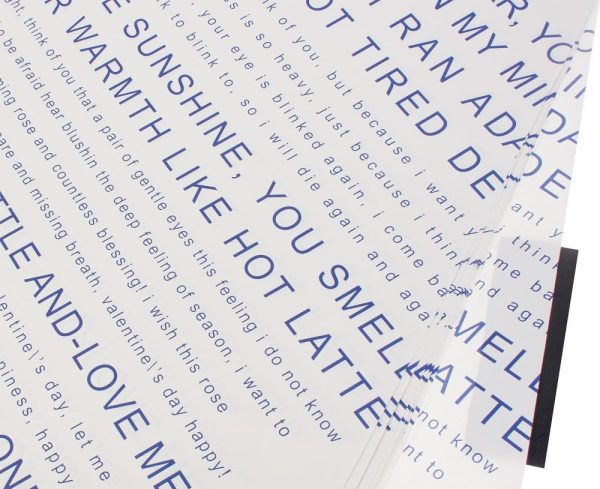 R, YO
N MY MIDA
I RAN ADADE
OT TIRED DE
nk of you, but because i want y
is is so heavy, just because i think
, your eye is blinked again, i come ba
k to blink to, so i will die again and agai
E SUNSHINE, YOU SMELL
R WARMTH LIKE HOT LATTE
ght, think of you that a pair of gentle eyes this feeling i do not know
o be afraid hear blushin the deep feeling of season, i want to
ming rose and countless blessing! i wish this rose
are and missing breath, valentine\'s day happy!
TLE AND-LOVE ME
lentine\'s day, let me
piness, happy
ant y
i think
ome ba
nd aga
MELL
ATTE
not know
nt to